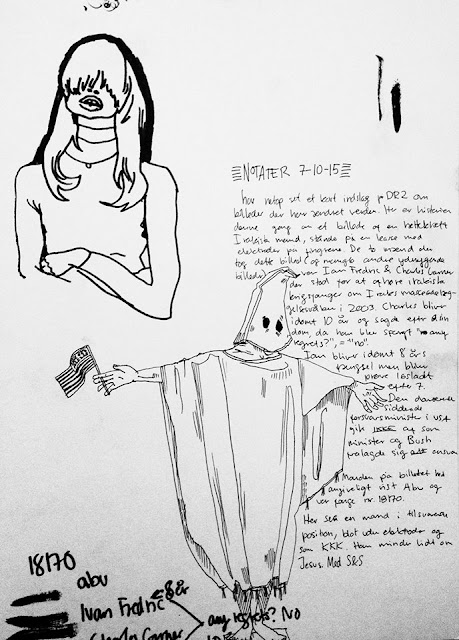 NOTATER 7-10-15
har netop set et kort indslag på DR2 om
billeder der har ændret verden. Her er historien
denne gang om et billede og en hætteklædt
Irakisk mand, stående på en kasse med
elektroder på fingrene. De to mænd der
tog dette billed (og mange andre ydmygende
billeder) var Ivan Fredric & Charles Garner
der stod for at afhøre irakiske
krigsfanger om Iraks masseødelæg-
gelsesvåben i 2003. Charles bliver
idømt 10 år og sagde efter sin
dom, da han blev spurgt "any
regrets?", = "no".
Ivan bliver idømt 8 års
fængsel men blev
prøve løsladt
efter 7.
Den daværende
siddende
forsvarsminister i USA
gik af som
minister og Bush
pålagde sig ansvar
Manden på billedet hed
angiveligt vist Abu og
var fange nr 18170.
Her ses en mand i tilsvarende
position, blot uden elektroder og
som KKK. Han minder lidt om
Jesus. Med S&S
18170
abu
Ivan Fredric 8 år
Charles Garner
any regrets? No
10